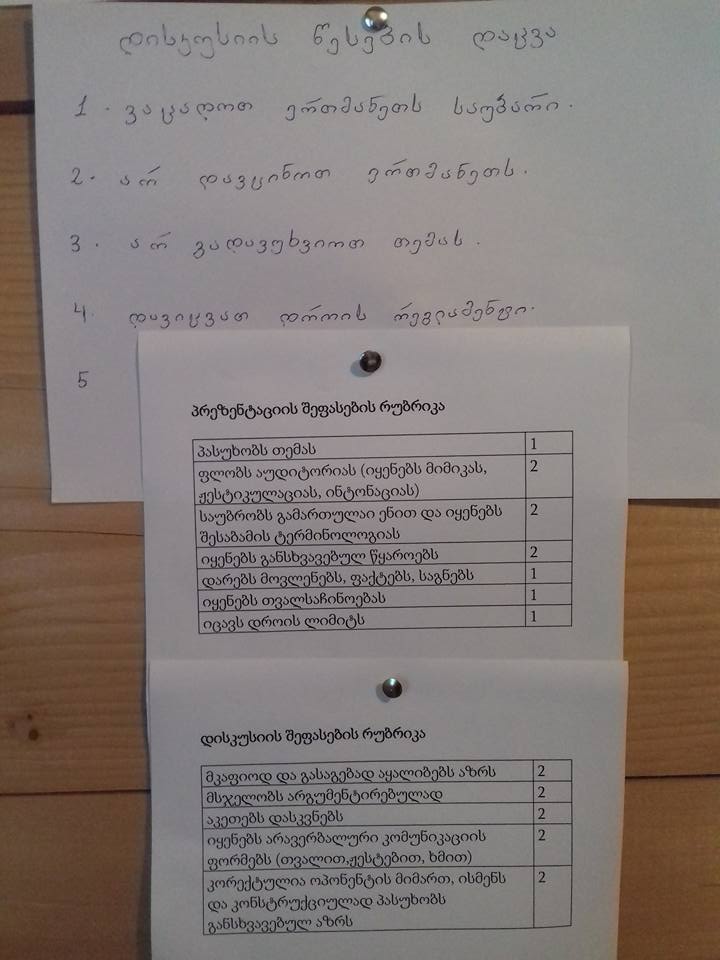 დისკუსიის წესების დაცვა
1. ვაცადოთ ერთმანეთს საუბარი.
2. არ დავცინოთ ერთმანეთს.
3. არ გადავუხვიოთ თემას.
4. დავიცვათ დროის რეგლამენტი.
5
პრეზენტაციის შეფასების რუბრიკა
პასუხობს თემას 1
ფლობს აუდიტორიას (იყენებს მიმიკას, 2
ჟესტიკულაციას, ინტონაციას)
საუბრობს გამართულაი ენით და იყენებს 2
შესაბამის ტერმინოლოგიას
იყენებს განსხვავებულ წყაროებს 2
დარებს მოვლენებს, ფაქტებს, საგნებს 1
იყენებს თვალსაჩინოებას 1
იცავს დროის ლიმიტს 1
დისკუსიის შეფასების რუბრიკა
მკაფიოდ და გასაგებად აყალიბებს აზრს 2
მსჯელობს არგუმენტირებულად 2
აკეთებს დასკვნებს 2
იყენებს არავერბალური კომუნიკაციის 2
ფორმებს (თვალით,ჟესტებით, ხმით)
კორექტულია ოპონენტის მიმართ, ისმენს 2
და კონსტრუქციულად პასუხობს
განსხვავებულ აზრს